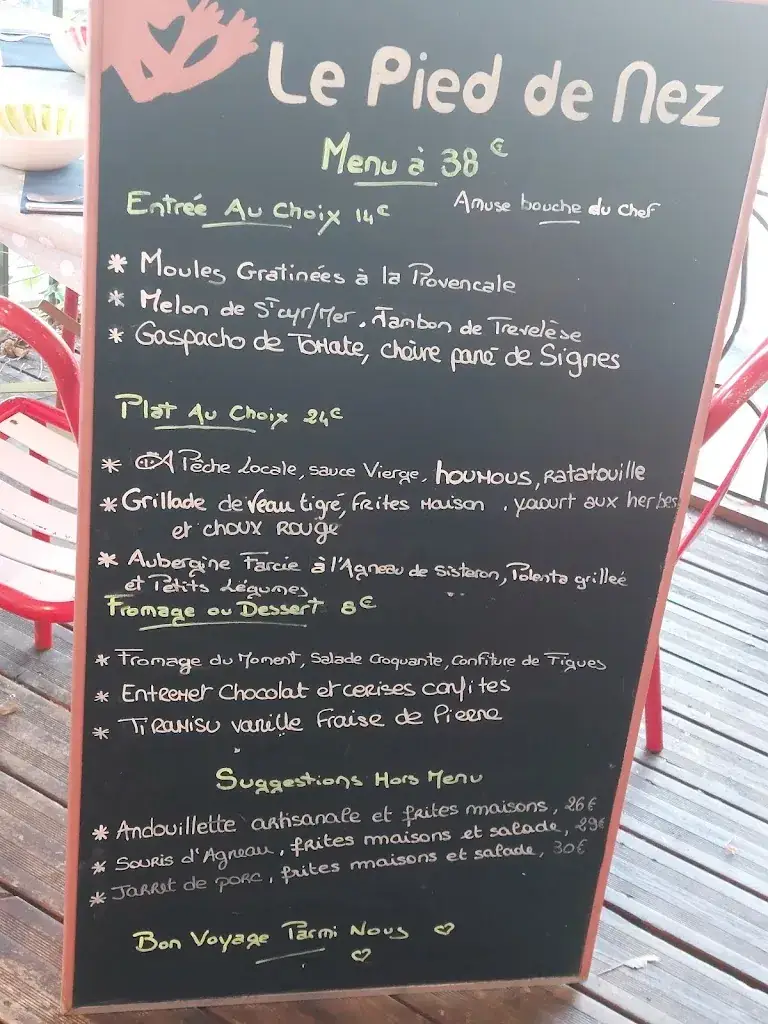 Le Pied de Nez
Menu à 38 €
Entrée Au Choix 14€
Amuse bouche du chef
* Moules Gratinées à la Provencale
* Melon de St cyr/Mer, Jambon de Trevelèse
* Gaspacho de Tomate, chèvre pané de Signes
Plat Au Choix 24€
* Pêche Locale, sauce Vierge, houmous, ratatouille
* Grillade de Veau tigré, frites Maison, yaourt aux herbes
et choux Rouge
* Aubergine Farcie à l'Agneau de Sisteron, Polenta grilleé
et Petits Légumes
Fromage ou Dessert 8€
* Fromage du Moment, Salade Croquante, Confiture de Figues
* Entremet Chocolat et cerises confites
* Tiramisu vanille Fraise de Pierre
Suggestions Hors Menu
* Andouillette artisanale et frites maisons, 26€
* Souris d'Agneau, frites maisons et salade, 29€
* Jarret de porc, frites maisons et salade, 30€
Bon Voyage Parmi Nous